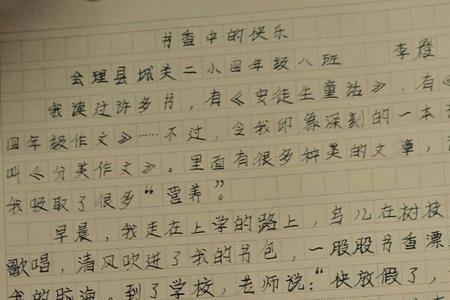 书香中的快乐
会理县城关二小四年级八班 李橙
我读过许多书，有《安徒生童话》、有《
四年级作文》……不过，令我印象深刻的一本书
叫《分类作文》。里面有很多种类的文章，
我吸取了很多“营养”。
早晨，我走在上学的路上，鸟儿在树枝
歌唱，清风吹进了我的书包，一股股书香漂
我的脑海。到了学校，老师说：“快放假了，